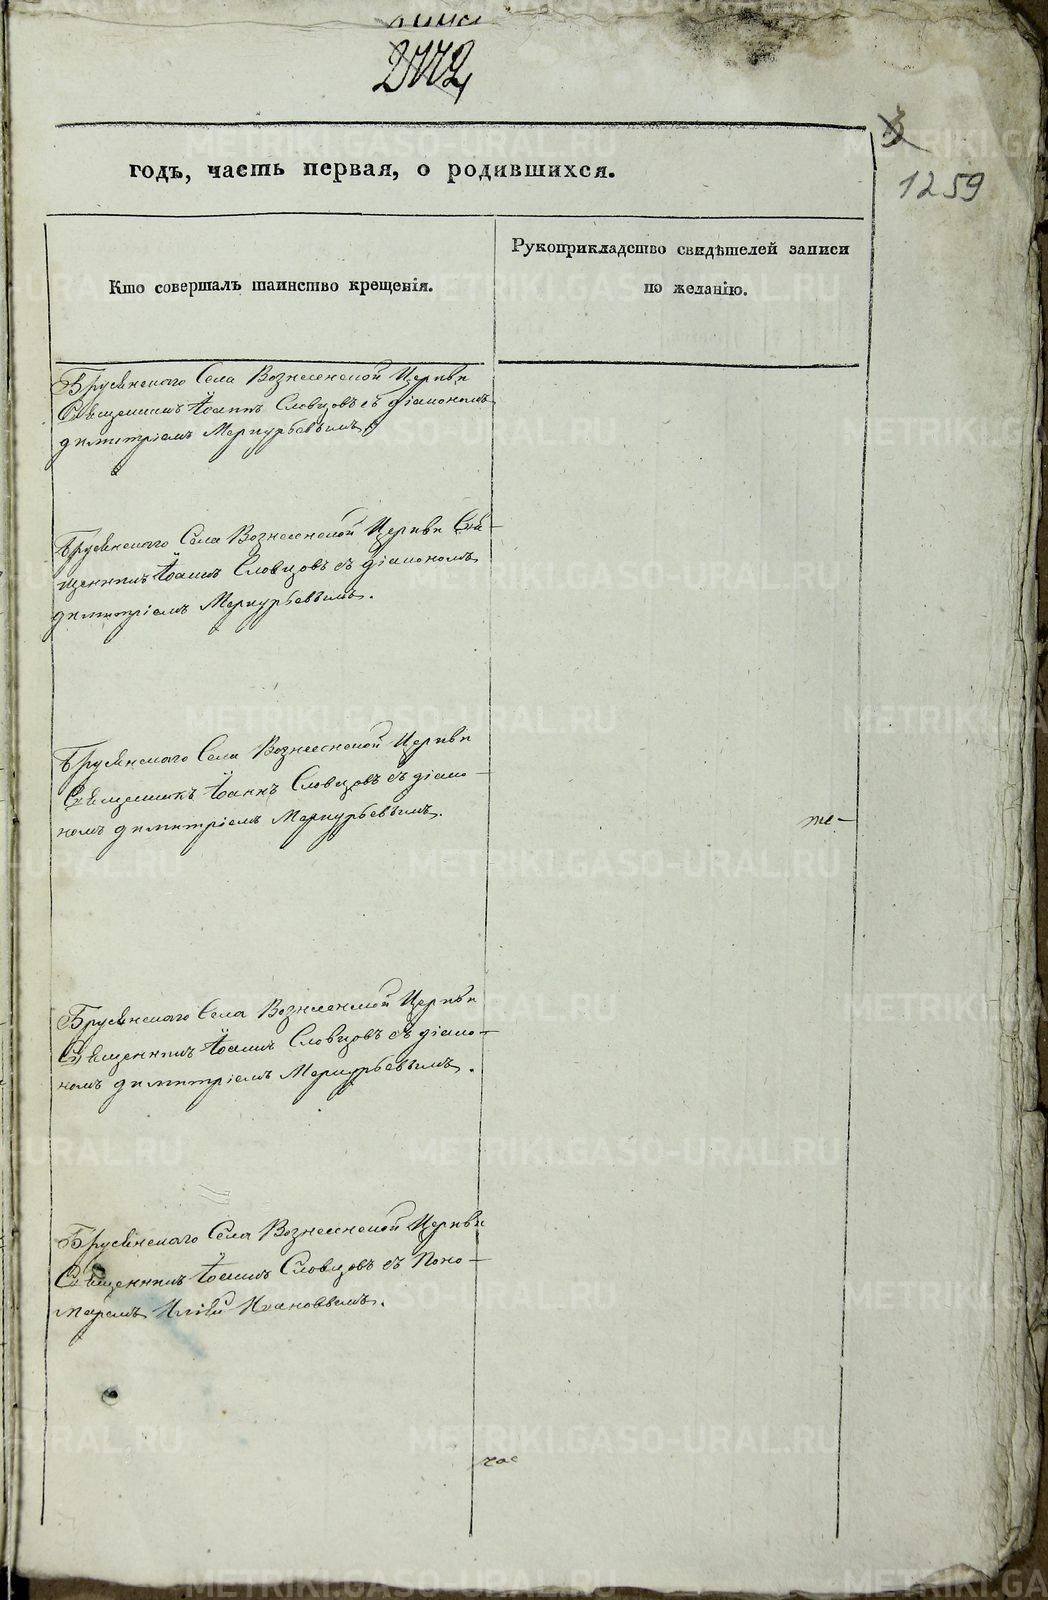 1259
годъ, часть первая, о родившихся.
Кто совершалъ таинство крещенія.
Рукоприкладство свидѣтелей записи
по желанію.
Брусянского Села Вознесенской Церкви
Священникъ Іоаннъ Словцовъ съ діакономъ
димитріемъ Меркурьевымъ,
Брусянского Села Вознесенской Церкви Свя-
щенникъ Іоаннъ Словцовъ съ діакономъ
димитріемъ Меркурьевымъ.
Брусянского Села Вознесенской Церкви
Священникъ Іоаннъ Словцовъ съ діако-
номъ димитріемъ Меркурьевымъ.
Брусянского Села Вознесенской Церкви
Священникъ Іоаннъ Словцовъ съ діако-
номъ димитріемъ Меркурьевымъ.
Брусянского Села Вознесенской Церкви
Священникъ Іоаннъ Словцовъ съ Поно-
маремъ Иліей Ивановымъ.
час
METRIKI.GASO-URAL.RU